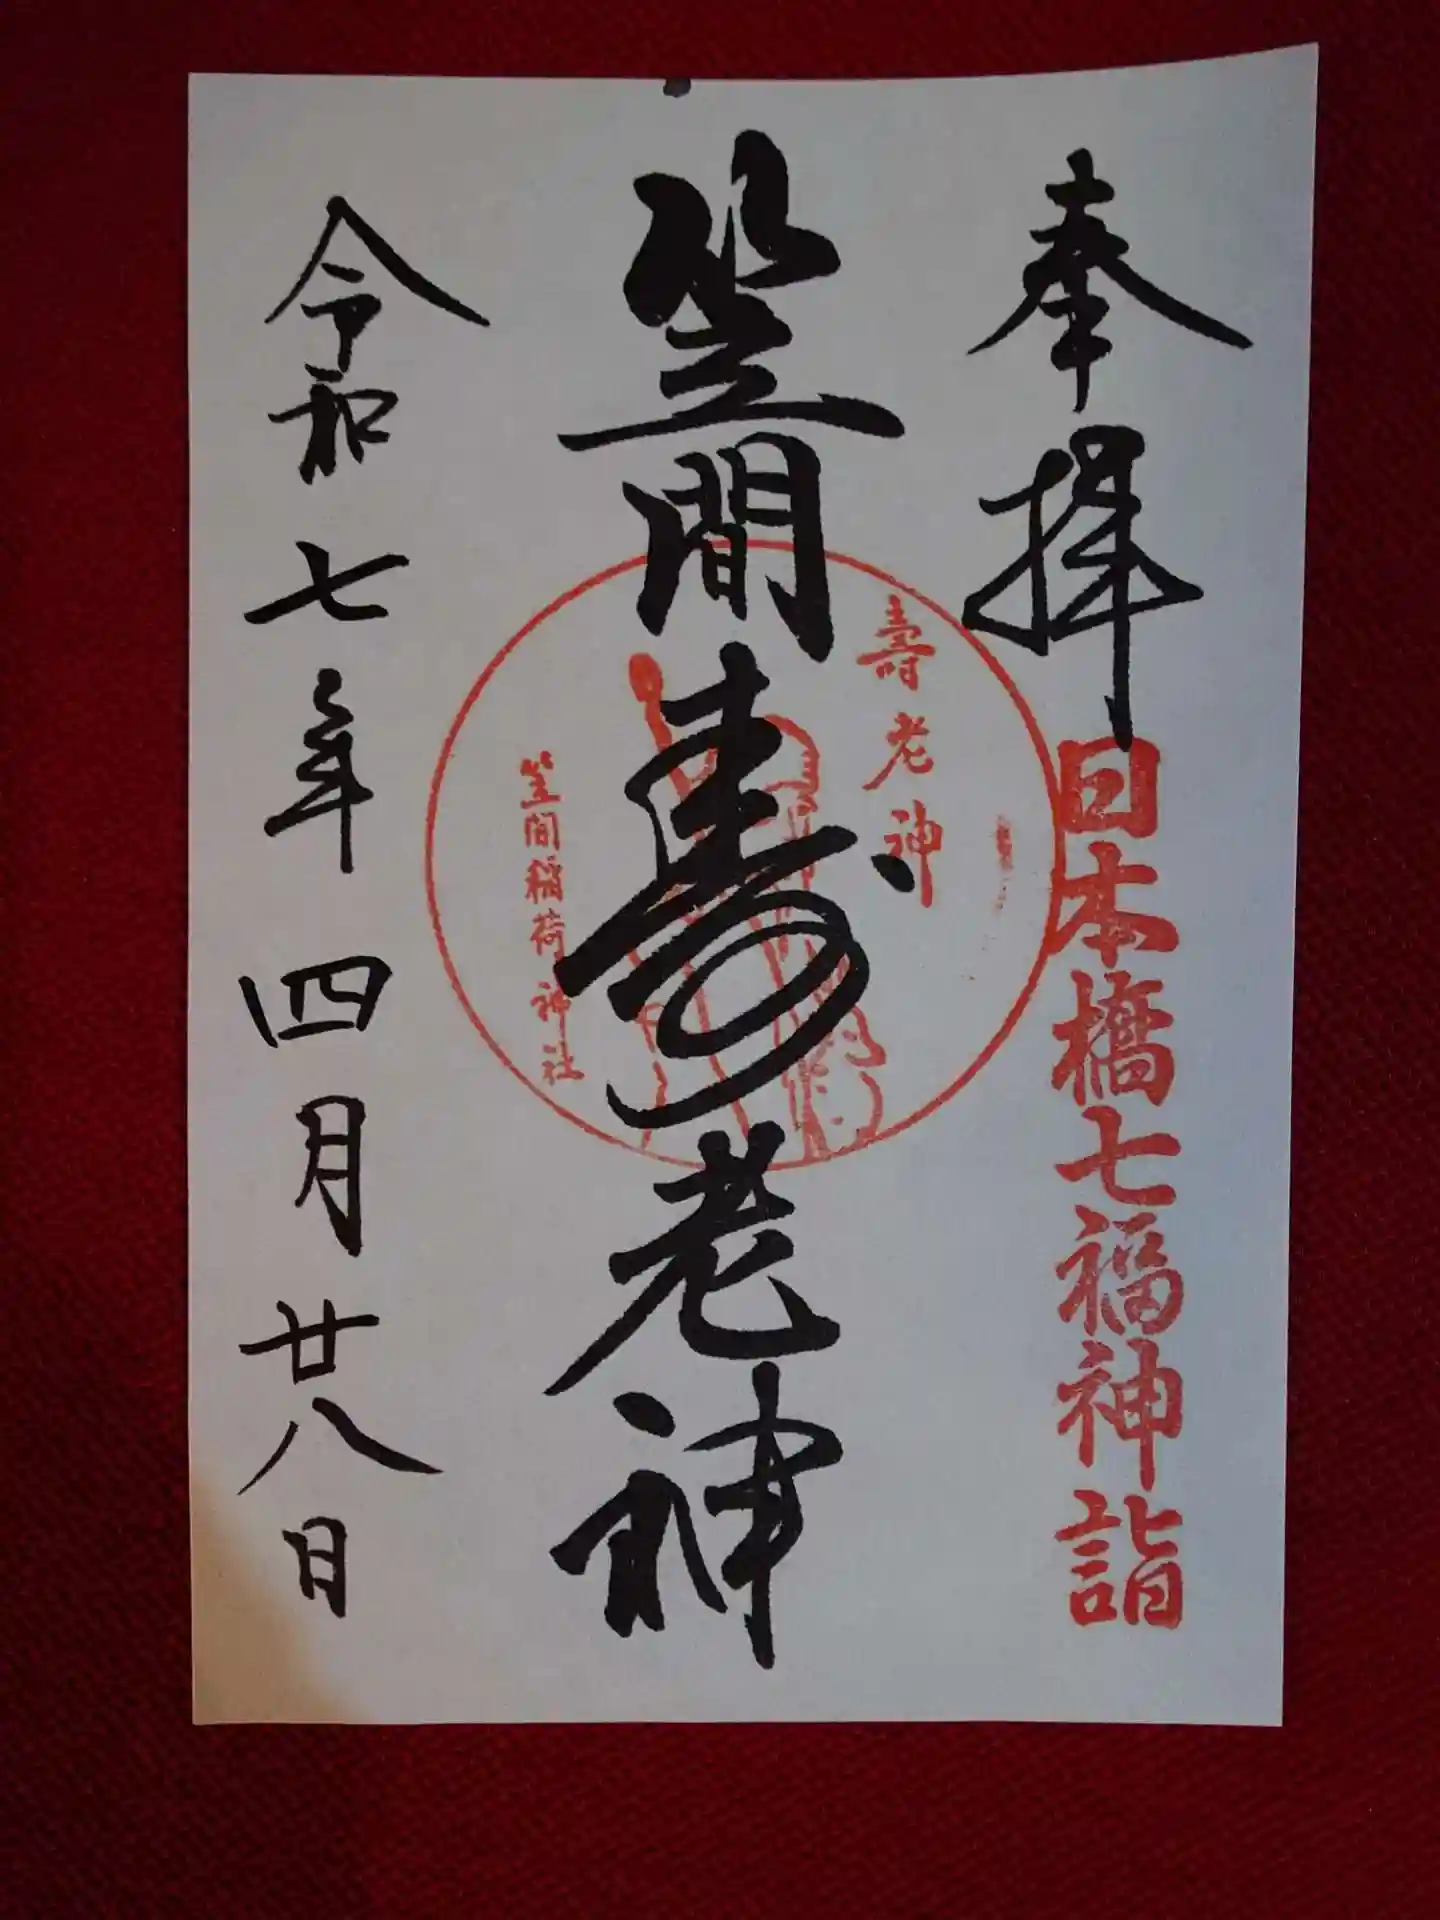 奉拝
日本橋七福神詣
笠間寿老神
壽老神
笠間稲荷神社
令和七年四月廿八日